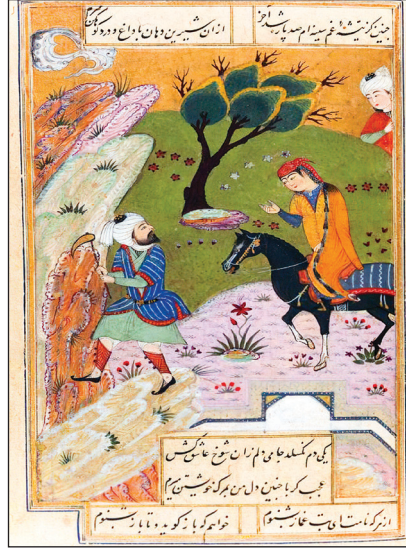 چنین کز تیشهٔ غم سینه ام صد پاره شد آخر ازان شیرین دهان با داغ و درد کوهکن
یکی دم نگسلد جامی دلم زان شوخ عاشق کش
عجب گر با چنین دل من بمرگ خویشتن میرم
از هر که نامت ای بت غماز بشنوم خواهم که باز گوید و تا باز بشنوم